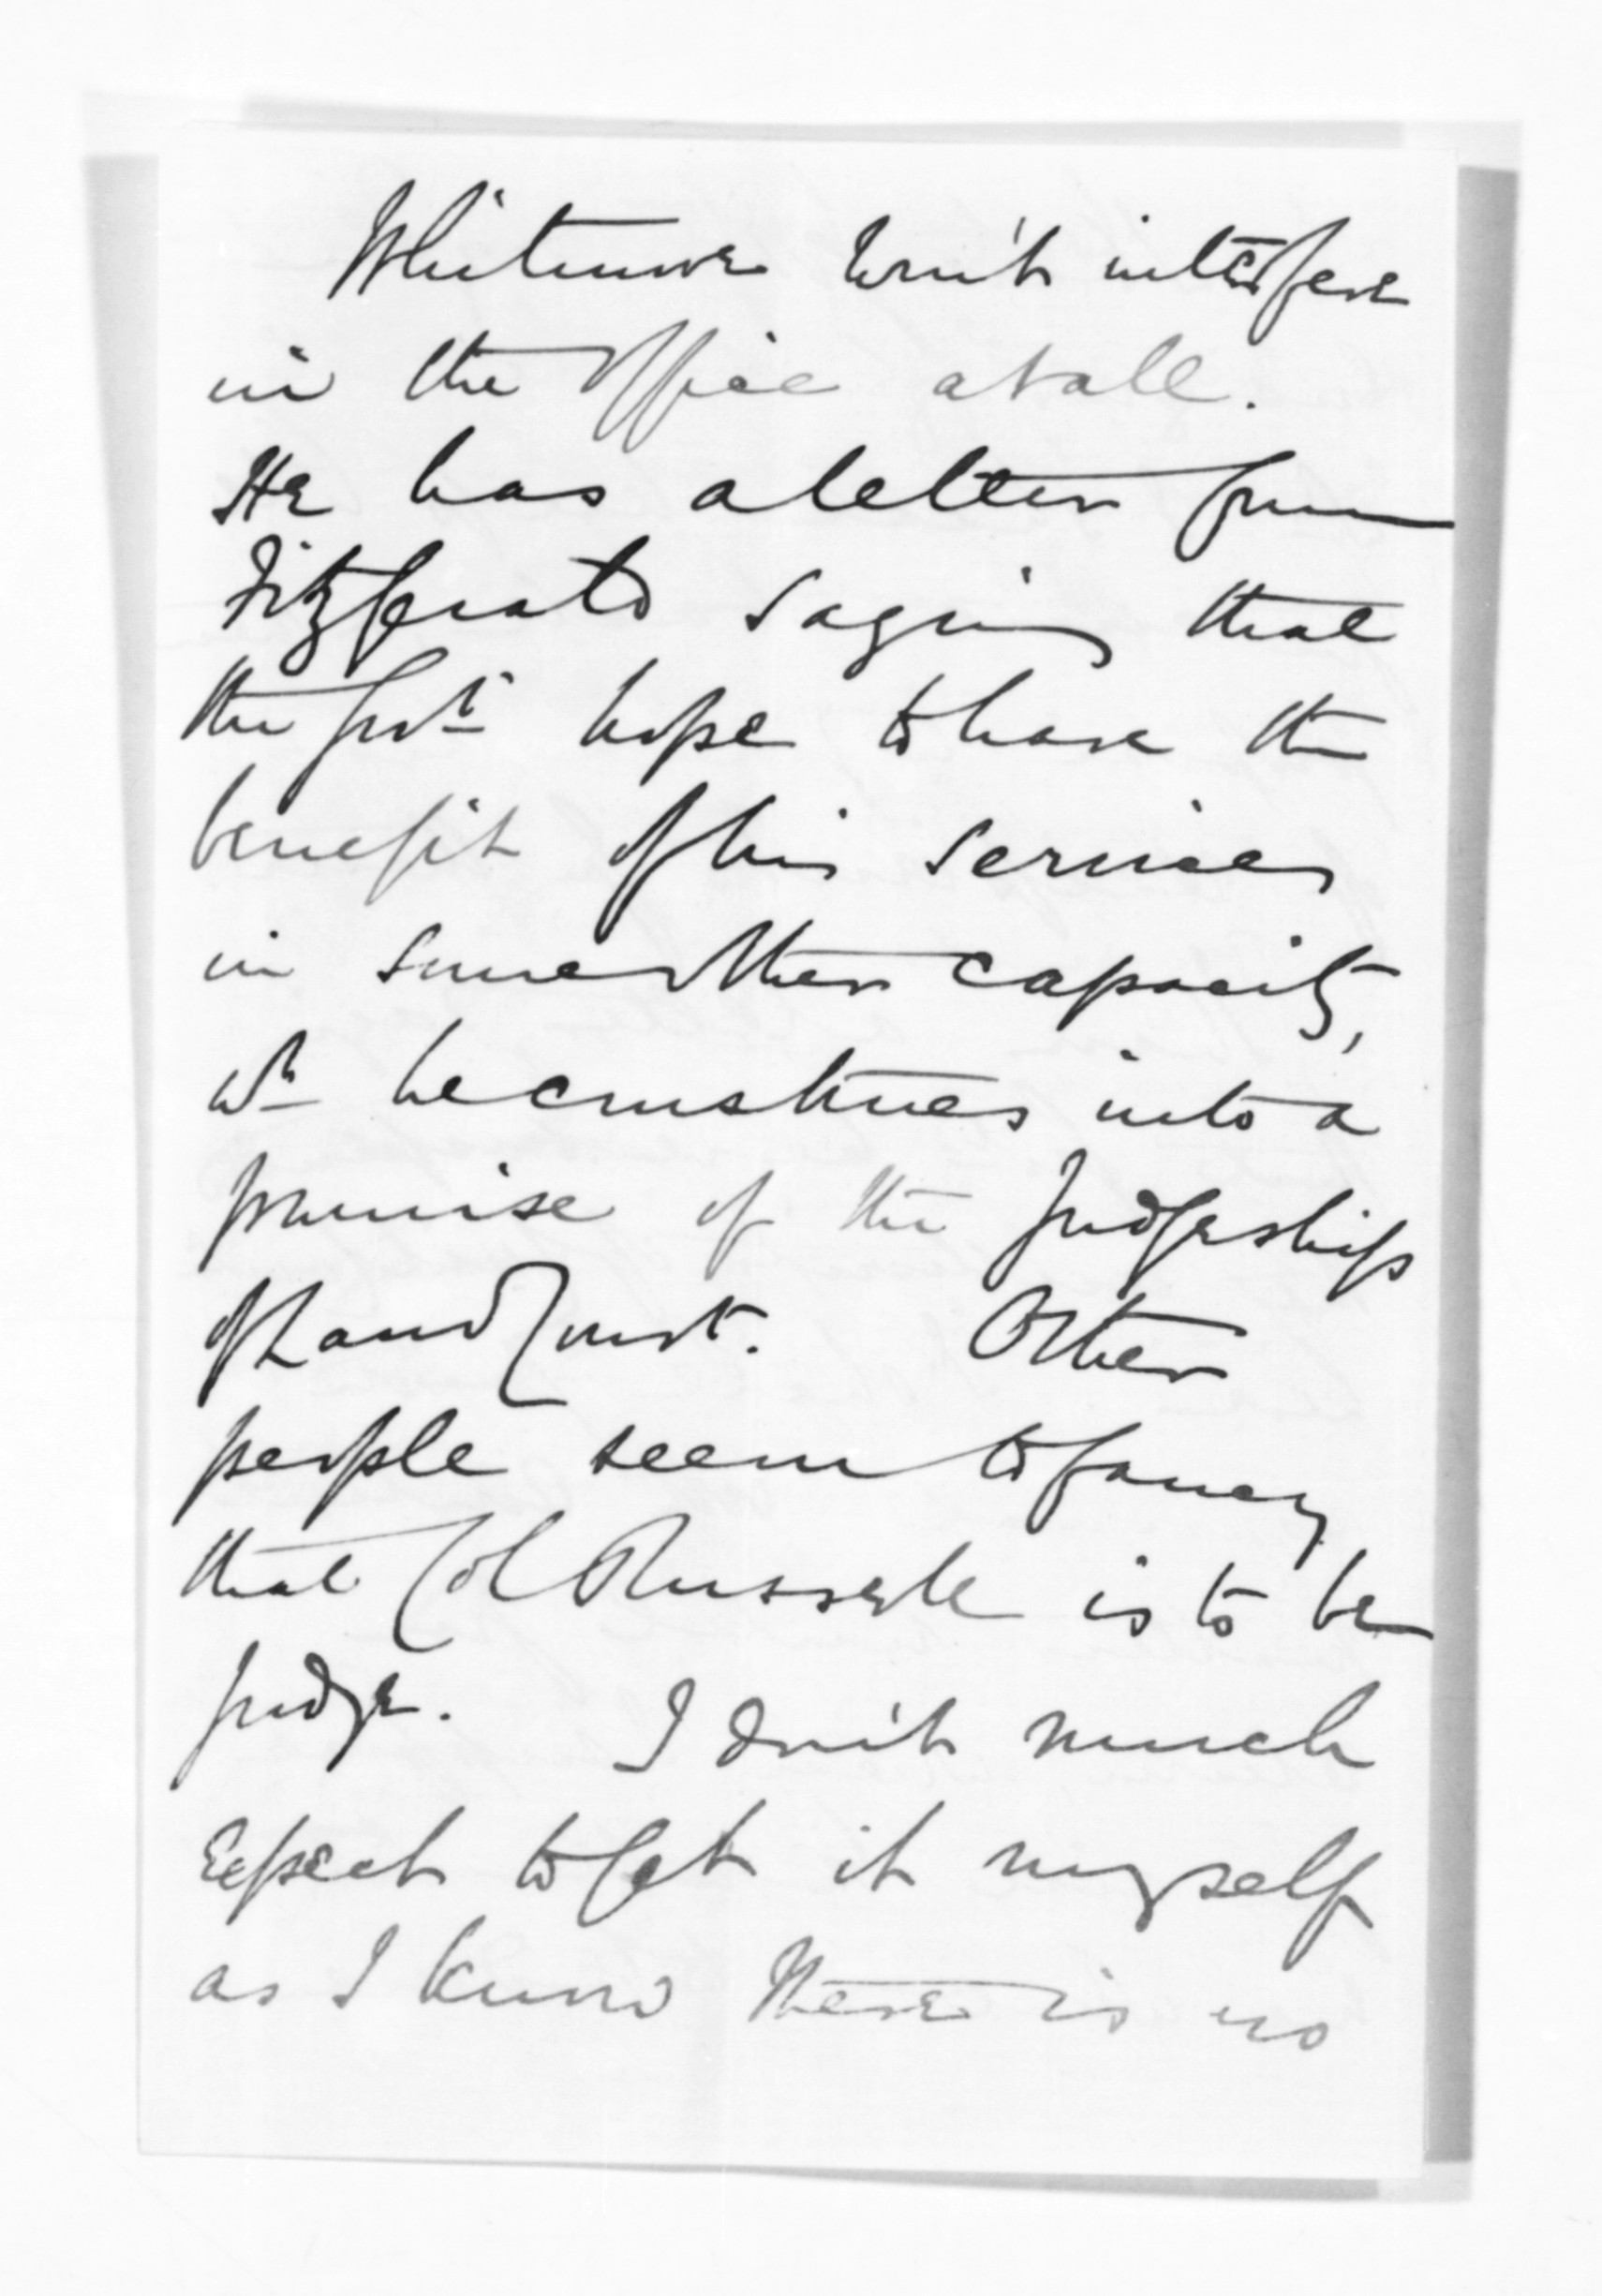 Whitmore won't interfere
in the office at all.
He has a letter from
Fitzgerald saying that
the Govt. hope to have the
benefit of his services
in some other capacity,
wh he construes into a
promise of the Judgeship
of Land Court. Other
people seem to fancy
that Col Russell is to be
judge. I don't much
expect to get it myself
as I know there is no